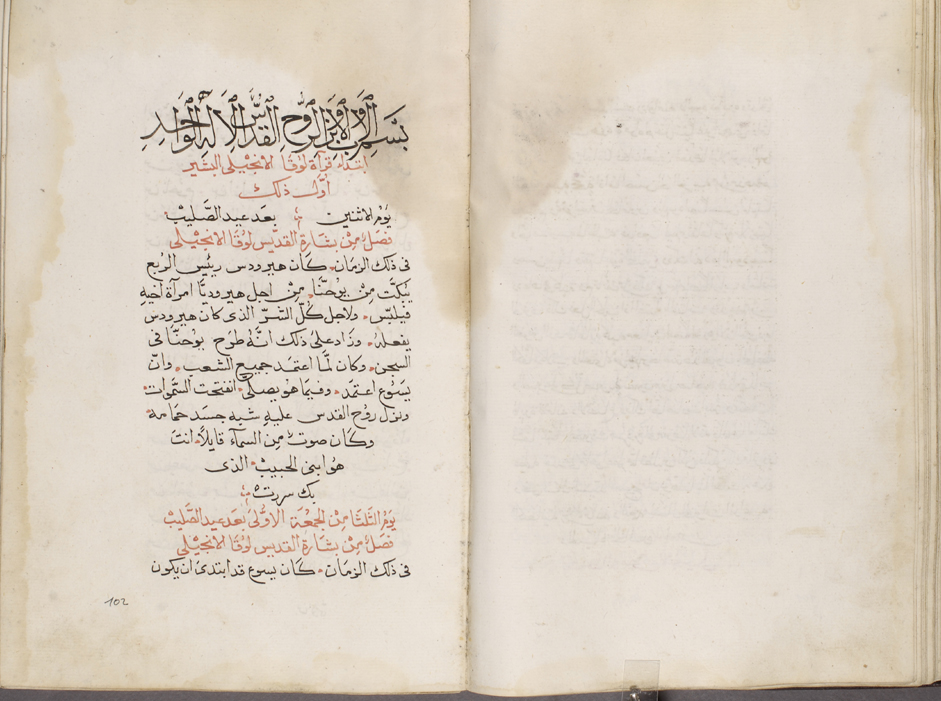 بسم الاب والابن والروح القدس الاله الواحد
ابتداء قرآة لوقا الانجيلى البشير
اول ذلك
يوم الاثنين بعد عيد الصَّليب
فصلٌ مِنْ بشارة القديس لوُقا الانجيْلى
فى ذلك الزمان كان هيرودس رئيس الربع
يُبكَّت مِنْ يوُحنّا مِنْ اجل هيروديّا امرآة اخيهِ
فيلبّس ولاجل كُلّ الشرّ الذى كان هيرودس
يفعله وزاد على ذلك انَّهُ طرح يوُحنّا فى
السجن وكان لمّا اعتمد جميع الشعب وانّ
يسَوُع اعتمد وفيما هو يصلى انفتحت السَّموات
ونزل روُح القدس عليهِ شبه جسد حمامة
وكان صوتٌ مِن السمآء قايلاً انتَ
هوُ ابنى الحبيبْ الذى
بك سررت
يوَمُ الثلثا مِنْ الجمعَة الاوُلىَ بَعد عيد الصَّليب
فصلٌ مِنْ بشارة القديس لوُقا الانجيْلى
فى ذلك الزمان كان يسوع قد ابتدئ ان يكون
102